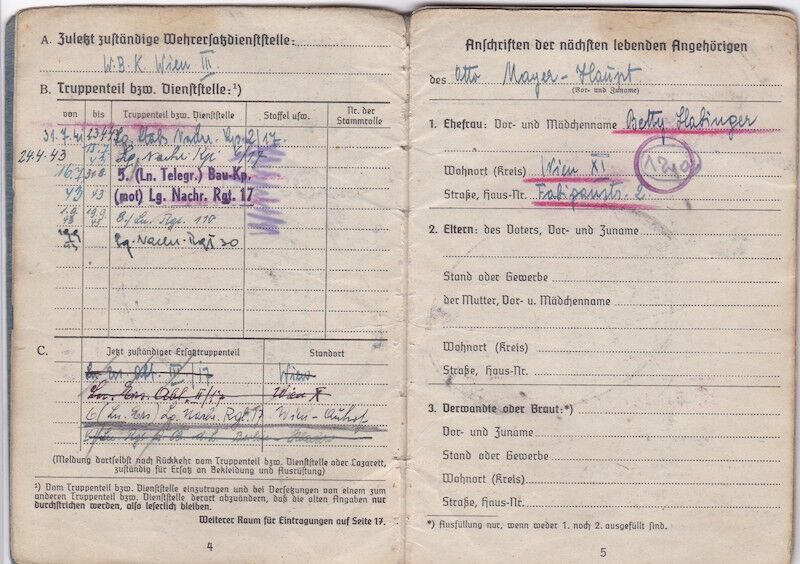 A. Zuletzt zuständige Wehrersatzdienststelle:
W.B.K. Wien III
B. Truppenteil bzw. Dienststelle:¹)
von bis Truppenteil bzw. Dienststelle Staffel usw. Nr. der Stammrolle
31.7.41 Nachr. Kp. 2/17
24.4.43 Lg. Nachr. Kp /17
5. (Ln. Telegr.) Bau-Kp.
43 43 (mot) Lg. Nachr. Rgl. 17
1.9. 19.9 Ln. Rgt.
Lg. Rgt 30
C. Jetzt zuständiger Ersatztruppenteil Standort
Ln. Ers. Abt. /17 Wien
Ln. Ers. Abt. II/17 Wien X
6/ Ln. Ers/ Lg. Nachr. Rgt. 17 Wien-
Berlin
(Meldung dortselbst nach Rückkehr vom Truppenteil bzw. Dienststelle oder Lazarett,
zuständig für Ersatz an Bekleidung und Ausrüstung)
¹) Vom Truppenteil bzw. Dienststelle einzutragen und bei Versetzungen von einem zum
anderen Truppenteil bzw. Dienststelle derart abzuändern, daß die alten Angaben nur
durchstrichen werden, also leserlich bleiben.
Weiterer Raum für Eintragungen auf Seite 17.
4
Anschriften der nächsten lebenden Angehörigen
des Otto Mayer-Haupt
(Vor- und Zuname)
1. Ehefrau: Vor- und Mädchenname Betty
Wohnort (Kreis) Wien XI
Straße, Haus-Nr. 2
2. Eltern: des Vaters, Vor- und Zuname
Stand oder Gewerbe
der Mutter, Vor- u. Mädchenname
Wohnort (Kreis)
Straße, Haus-Nr.
3. Verwandte oder Braut:*)
Vor- und Zuname
Stand oder Gewerbe
Wohnort (Kreis)
Straße, Haus-Nr.
*) Ausfüllung nur, wenn weder 1. noch 2. ausgefüllt sind.
5